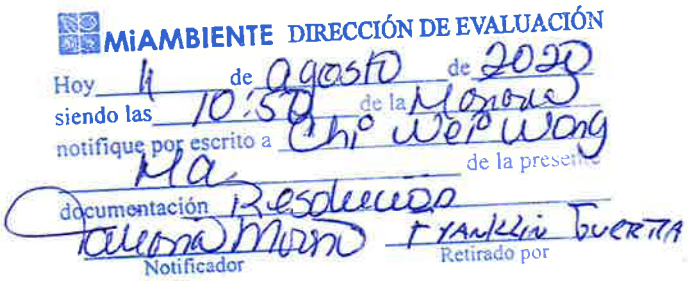 MiAMBIENTE DIRECCIÓN DE EVALUACIÓN
Hoy 4 de agosto de 2020
siendo las 10:50 de la Mañana
notifique por escrito a Chi Wei Wong
Ma de la presente
documentación Resolucion
Moreno Franklin Guerra
Notificador Retirado por